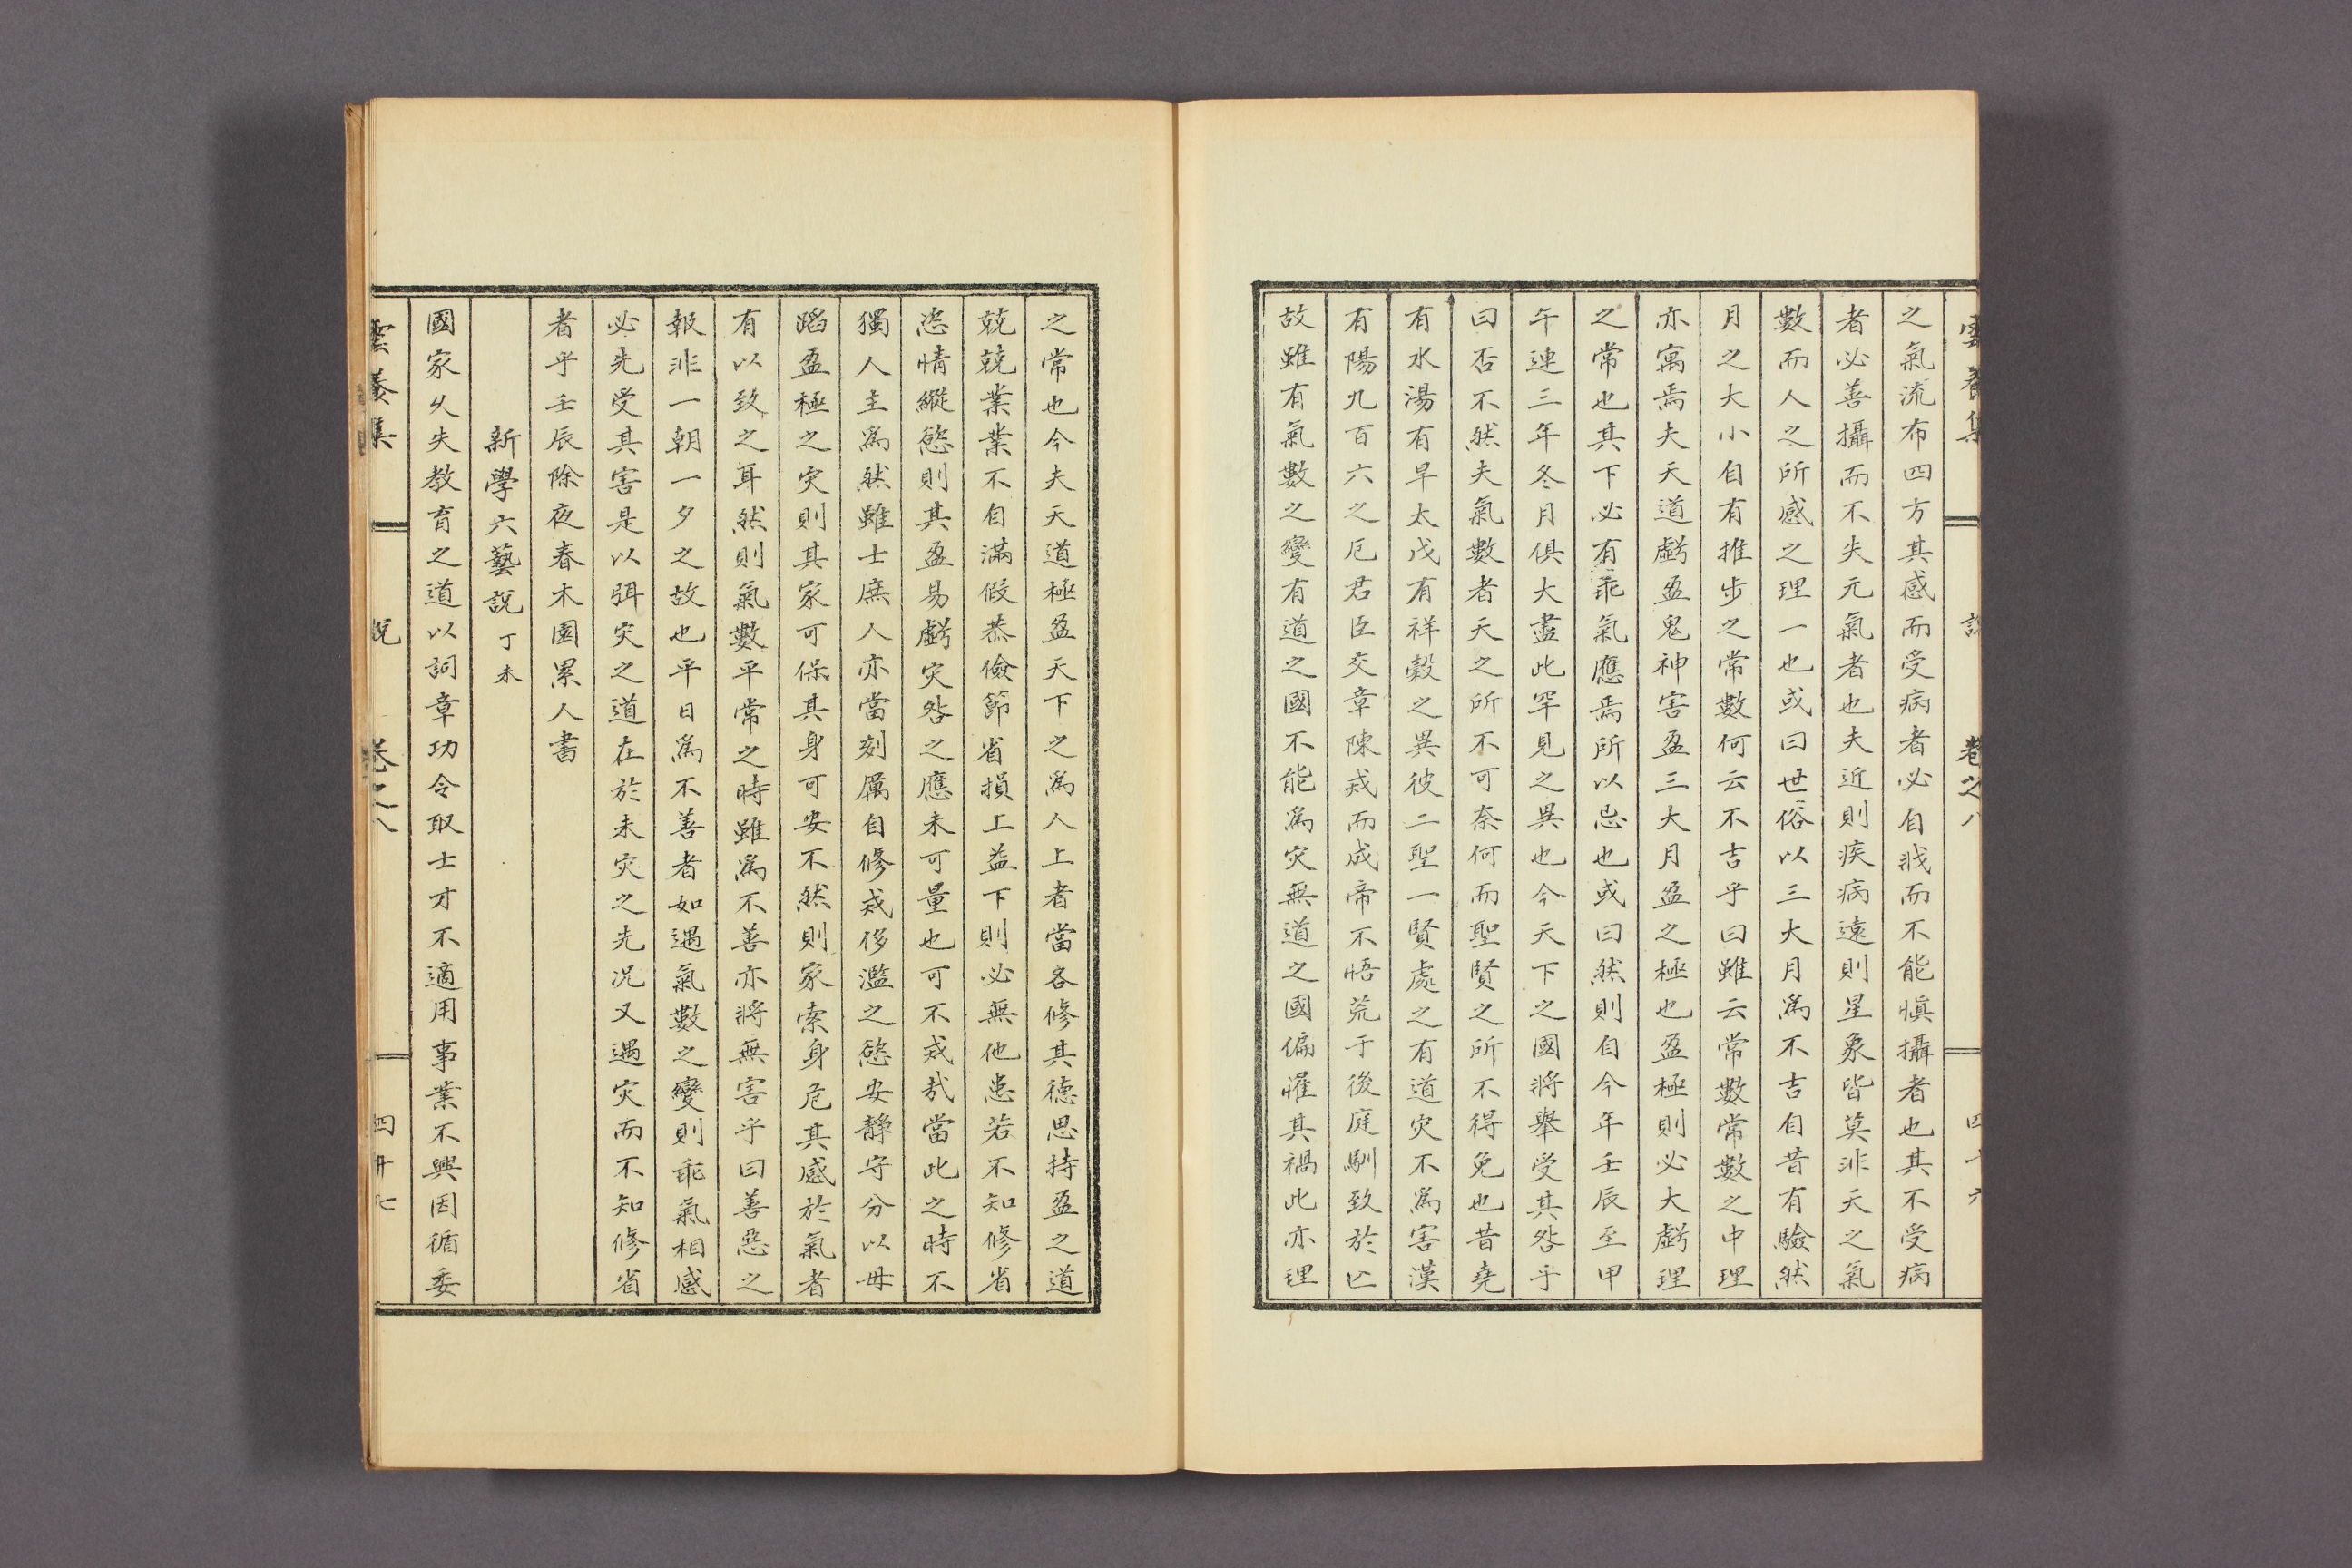 雲養集 說 卷之八 四十六
之氣流布四方其感而受病者必自戕而不能愼攝者也其不受病
者必善攝而不失元氣者也夫近則疾病遠則星象皆莫非天之氣
數而人之所感之理一也或曰世俗以三大月爲不吉自昔有驗然
月之大小自有推步之常數何云不吉乎曰雖云常數常數之中理
亦寓焉夫天道虧盈鬼神害盈三大月盈之極也盈極則必大虧理
之常也其下必有乖氣應焉所以忌也或曰然則自今年壬辰至甲
午連三年冬月俱大盡此罕見之異也今天下之國將擧受其咎乎
曰否不然夫氣數者天之所不可奈何而聖賢之所不得免也昔堯
有水湯有旱太戊有祥穀之異彼二聖一賢處之有道灾不爲害漢
有陽九百六之厄君臣交章陳戒而成帝不悟荒于後庭馴致於亡
故雖有氣數之變有道之國不能爲灾無道之國偏罹其禍此亦理
之常也今夫天道極盈天下之爲人上者當各修其德思持盈之道
兢兢業業不自滿假恭儉節省損上益下則必無他患若不知修省
恣情縱慾則其盈易虧灾咎之應未可量也可不戒哉當此之時不
獨人主爲然雖士庶人亦當刻厲自修戒侈濫之慾安靜守分以毋
蹈盈極之灾則其家可保其身可安不然則家索身危其感於氣者
有以致之耳然則氣數平常之時雖爲不善亦將無害乎曰善惡之
報非一朝一夕之故也平日爲不善者如遇氣數之變則乖氣相感
必先受其害是以弭灾之道在於未灾之先况又遇灾而不知修省
者乎壬辰除夜春木園累人書
新學六藝說 丁未
國家久失敎育之道以詞章功令取士才不適用事業不興因循委
雲養集 說 卷之八 四十七